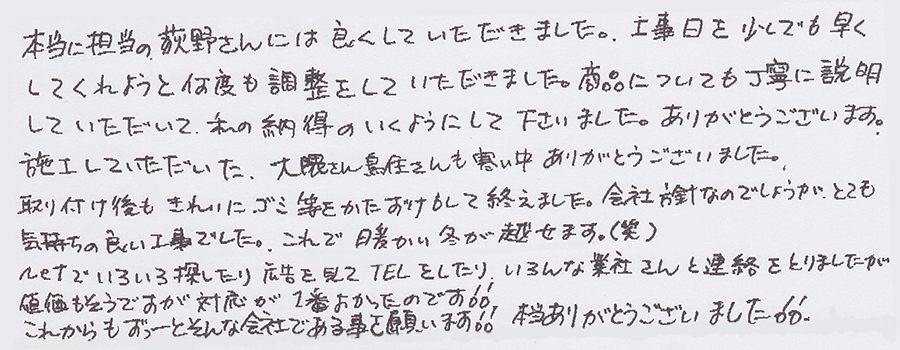 本当に担当の荻野さんには良くしていただきました。工事日を少しでも早く
してくれようと何度も調整をしていただきました。商品についても丁寧に説明
していただいて、私の納得のいくようにして下さいました。ありがとうございます。
施工していただいた、大隈さん鳥住さんも寒い中ありがとうございました。
取り付け後もきれいにゴミ等をかたずけもして終えました。会社方針なのでしょうが、とても
気持ちの良い工事でした。これで暖かい冬が越せます。(笑)
netでいろいろ探したり広告を見てTELをしたり、いろんな業社さんと連絡をとりましたが
値価もそうですが対応が1番よかったのです!!
これからもずぅーとそんな会社である事を願います!! 本当ありがとうございました!!